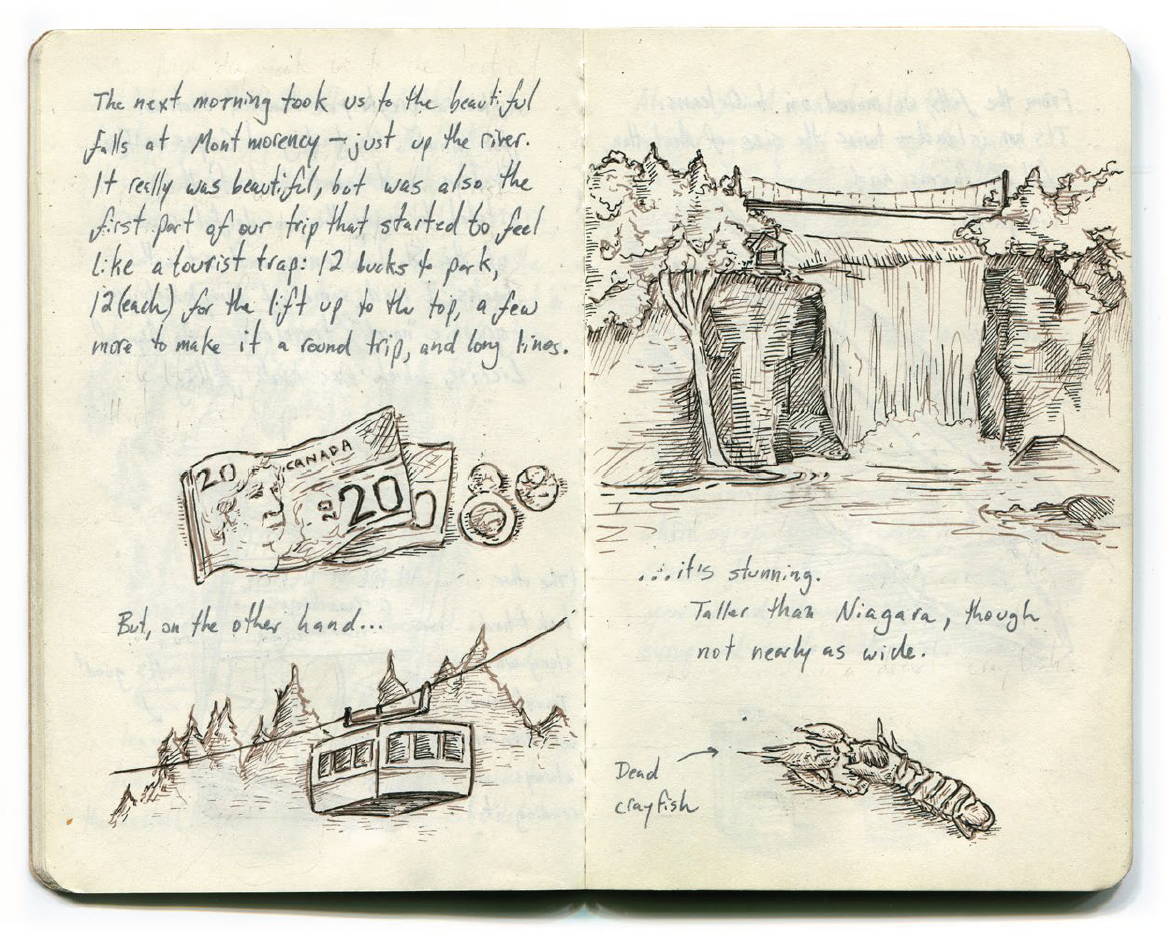 The next morning took us to the beautiful
falls at Montmorency – just up the river.
It really was beautiful, but was also the
first part of our trip that started to feel
like a tourist trap: 12 bucks to park,
12 (each) for the lift up to the top, a few
more to make it a round trip, and long lines.
20
CANADA
20
20
0
But, on the other hand...
...it's stunning.
Taller than Niagara, though
not nearly as wide.
Dead
crayfish